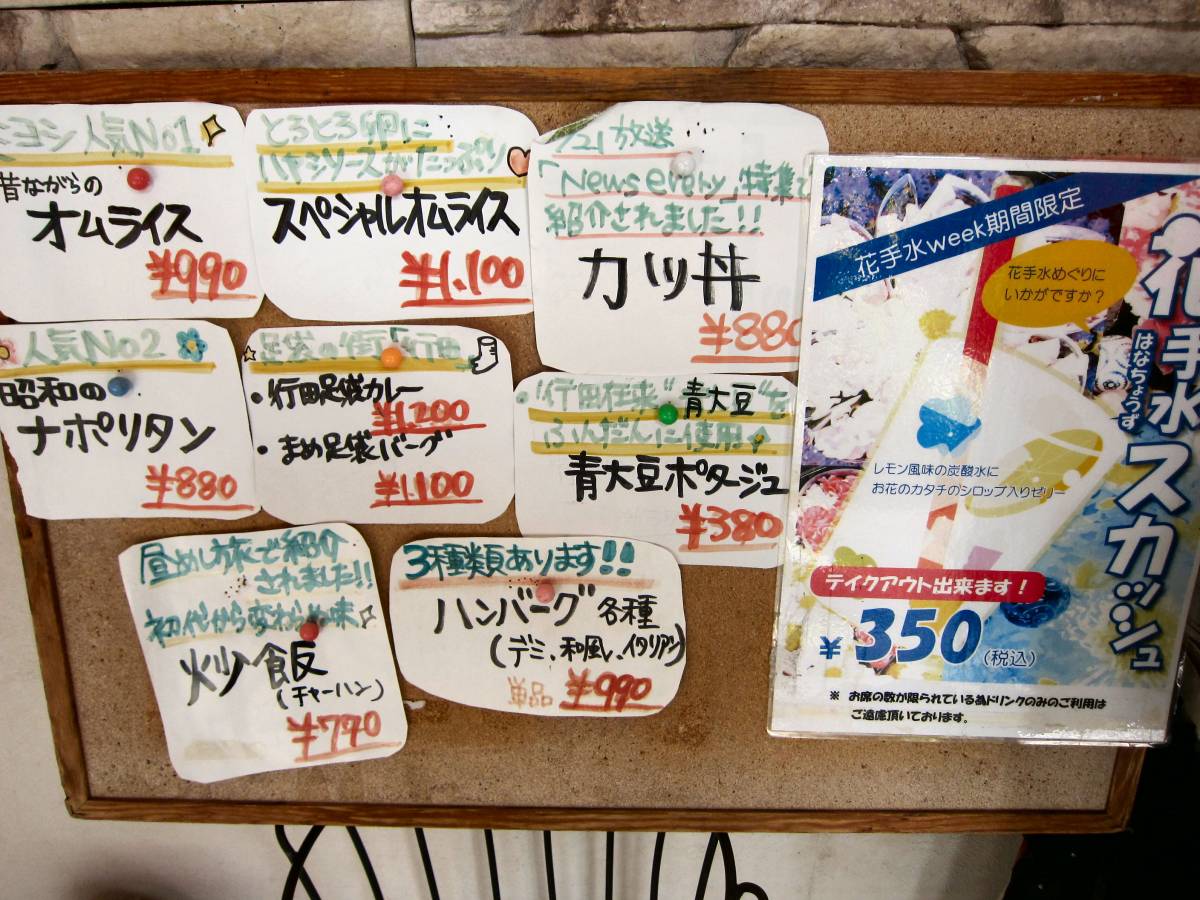 ミヨシ人気No1
昔ながらの
オムライス
¥990
とろとろ卵に
ハヤシソースがたっぷり
スペシャルオムライス
¥1,100
/21 放送
「News every」特集で
紹介されました!!
カツ丼
¥880
人気No2
昭和の
ナポリタン
¥880
足袋の街「行田」
・行田足袋カレー
¥1,200
・まめ足袋バーグ
¥1,100
"行田在来"青大豆"を
ふんだんに使用
青大豆ポタージュ
¥380
昼めし旅で紹介
されました!!
初代から変わらぬ味
炒飯
(チャーハン)
¥770
3種類あります!!
ハンバーグ 各種
(デミ、和風、イタリアン)
単品 ¥990
花手水week期間限定
花手水めぐりに
いかがですか?
花手水スカッシュ
はなちょうず
レモン風味の炭酸水に
お花のカタチのシロップ入りゼリー
テイクアウト出来ます!
¥350(税込)
※ お席の数が限られている為ドリンクのみのご利用は
ご遠慮頂いております。